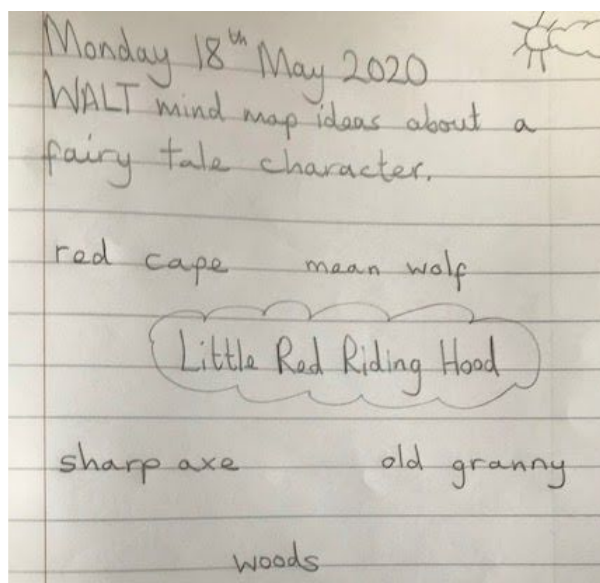 Monday 18th May 2020
WALT mind map ideas about a
fairy tale character.
red cape mean wolf
Little Red Riding Hood
sharp axe old granny
woods